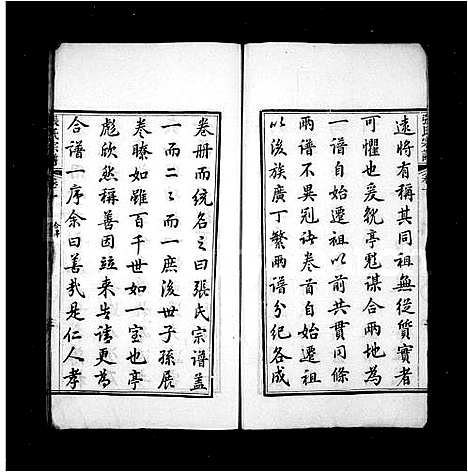 遠將有稱其同祖無從質實者
可懼也爰就亭彪謀合兩地為
一譜自始遷祖以前共貫同條
兩譜不異冠諸卷首自始遷祖
以後族廣丁繁兩譜分紀各成
卷册而統名之曰張氏宗譜蓋
一而二二而一庶後世子孫展
卷瞭如雖百千世如一室也亭
彪欣然稱善因踵來告請更為
合譜一序余曰善哉是仁人孝
張氏宗譜